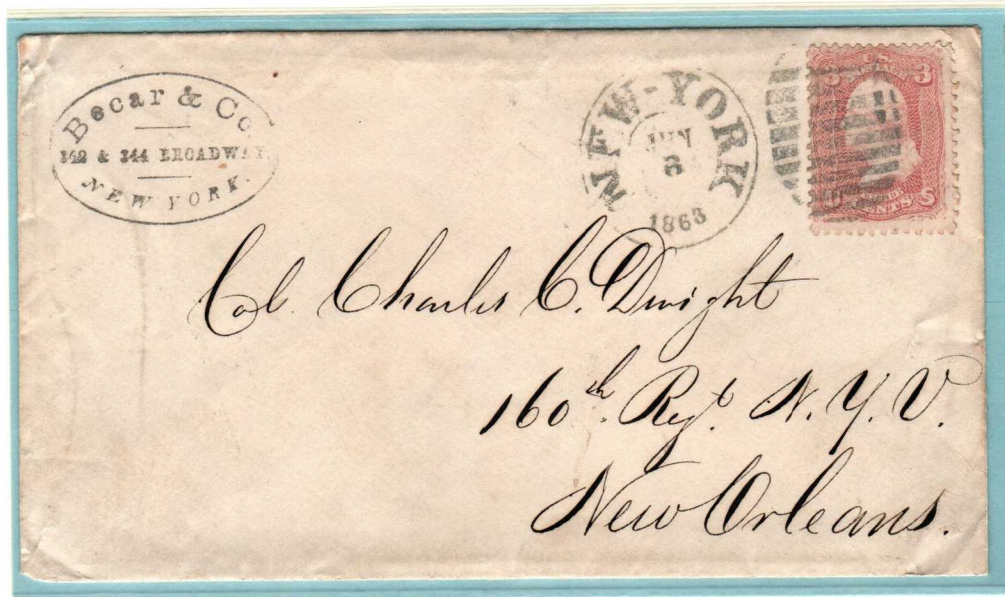 Becar & Co.
342 & 344 BROADWAY
NEW YORK.
NEW-YORK
JUN
6
1863
3 U.S. 3
CENTS
U S
Col. Charles C. Dwight
160th. Regt. N. Y. V.
New Orleans.